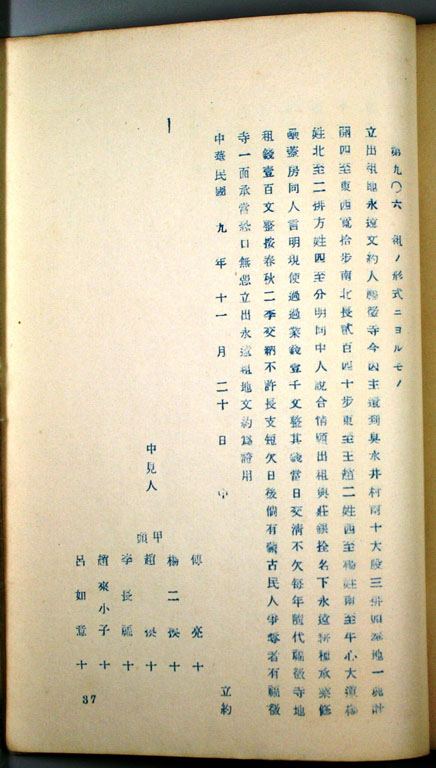 第九〇六 租ノ形式ニヨルモノ
立出租地永遠文約人福徵寺今因主還到臭水井村南十大股三併四為地一段計
開四至東西寬拾步南北長貳百四十步東至王趙二姓西至楊姓南至牛心大道楊
姓北至二併方姓四至分明同中人說合情願出租與莊銀拴名下永遠耕種承業修
蓋房同人言明現使過過業錢壹千文整其錢當日交清不欠每年隨代福徵寺地
租錢壹百文整按春秋二季交納不許長支短欠日後倘有蒙古民人爭奪者有福徵
寺一面承當恐口無憑立出永遠租地文約為證用
中華民國 九年十一月二十日 立約
中見人
傅亮十
楊二長十
甲頭 趙長十
李長福十
趙來小子十
呂如意十
37